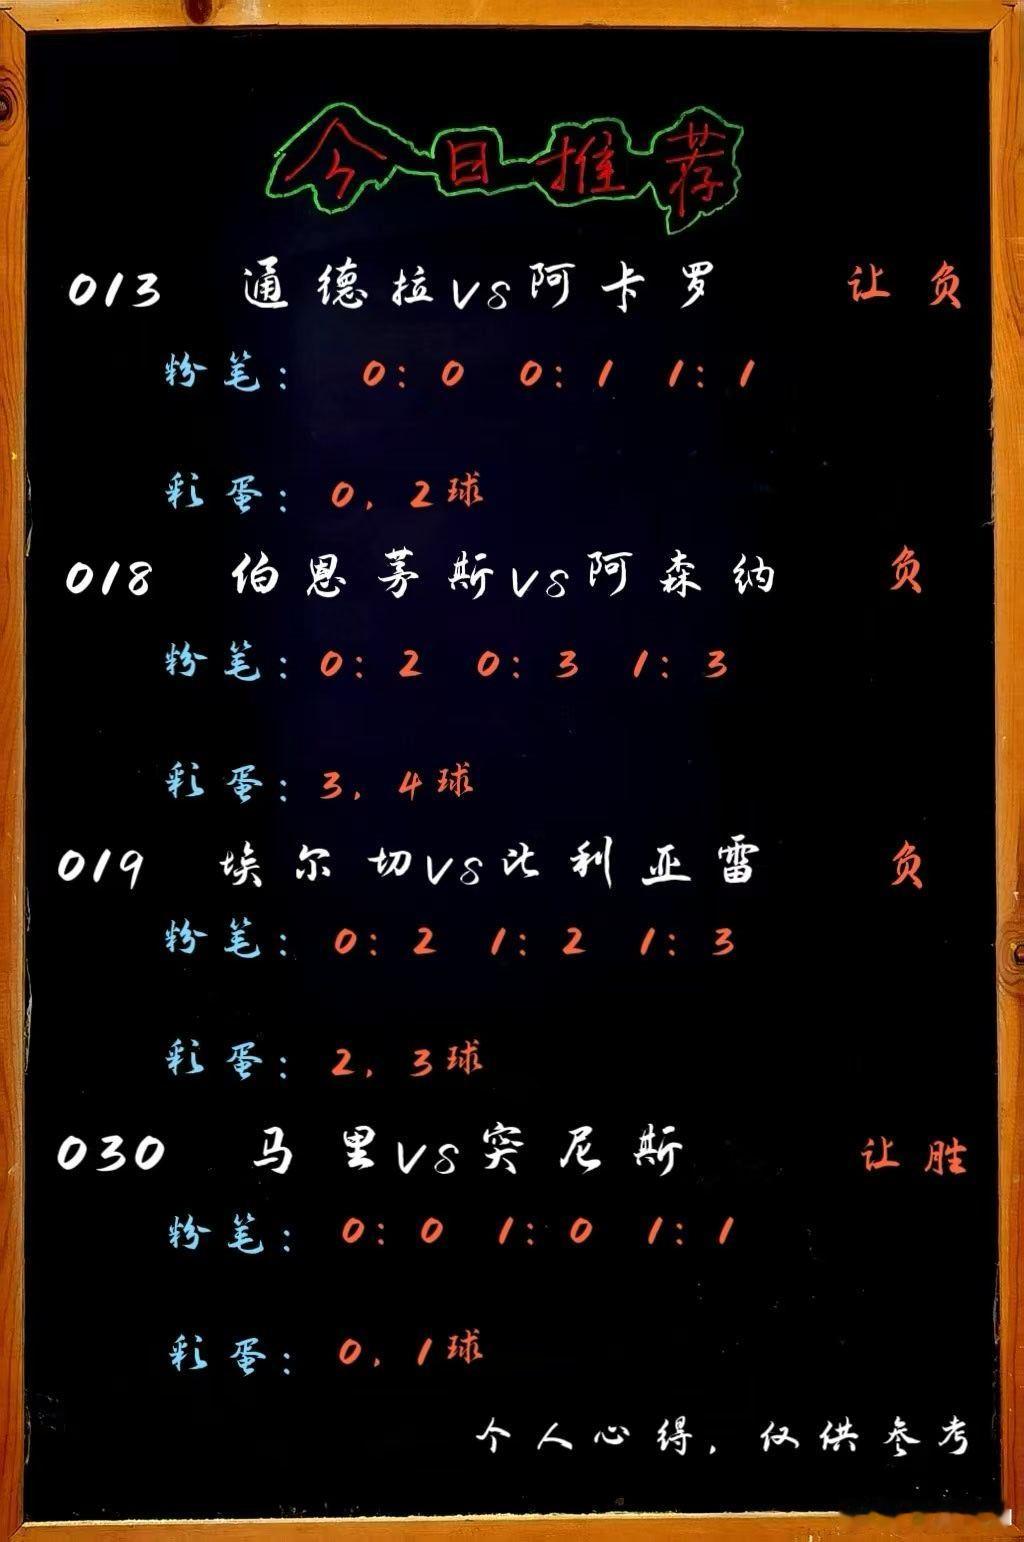 今日推荐
013 通德拉VS阿卡罗 让负
粉笔: 0:0 0:1 1:1
彩蛋: 0, 2球
018 伯恩茅斯VS阿森纳 负
粉笔: 0:2 0:3 1:3
彩蛋: 3, 4球
019 埃尔切VS比利亚雷 负
粉笔: 0:2 1:2 1:3
彩蛋: 2, 3球
030 马里VS突尼斯 让胜
粉笔: 0:0 1:0 1:1
彩蛋: 0, 1球
个人心得, 仅供参考